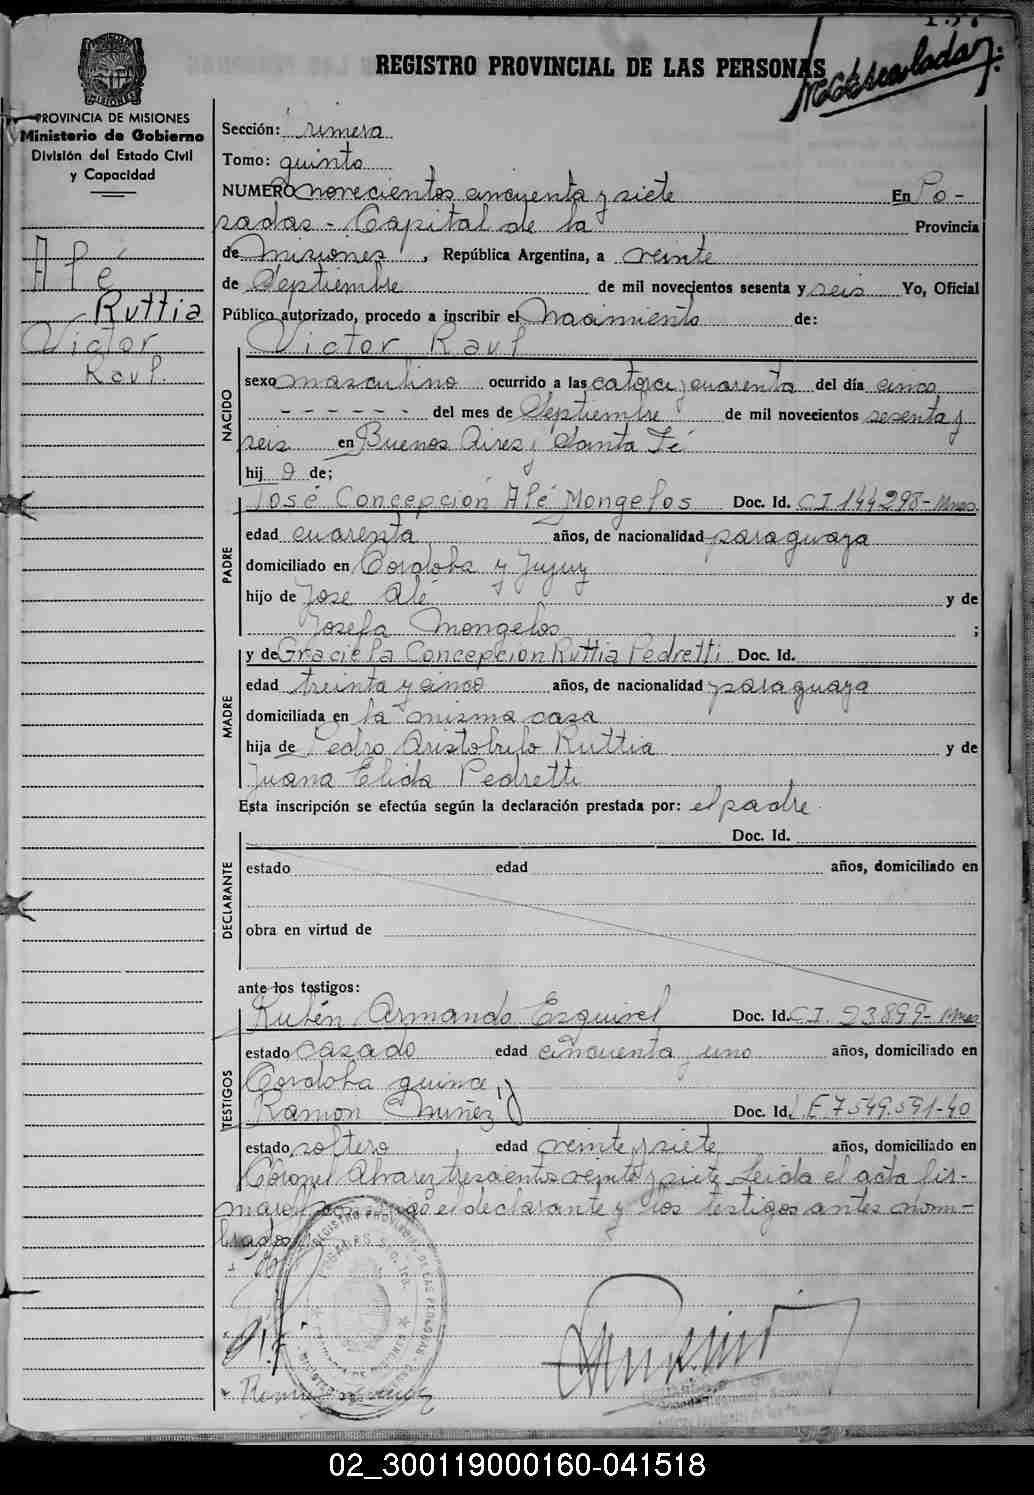 REGISTRO PROVINCIAL DE LAS PERSONAS
MISIONES
PROVINCIA DE MISIONES
Ministerio de Gobierno
División del Estado Civil
y Capacidad
Alé
Ruttia
Victor
Raul.
Sección: Primera
Tomo: quinto
NUMERO novecientos cincuenta y siete En Po-
sadas - Capital de la Provincia
de Misiones, República Argentina, a veinte
de Septiembre de mil novecientos sesenta y seis Yo, Oficial
Público autorizado, procedo a inscribir el Nacimiento de:
Victor Raul
NACIDO
sexo masculino ocurrido a las catorce y cuarenta del día cinco
- - - - - - - del mes de Septiembre de mil novecientos sesenta y
seis en Buenos Aires y Santa Fé
hij o de;
PADRE
José Concepcion Alé Mongelos Doc. Id. C I 144298 - Mnes.
edad cuarenta años, de nacionalidad paraguaya
domiciliado en Cordoba y Jujuy
hijo de José Alé y de
Josefa Mongelos ;
MADRE
y de Graciela Concepcion Ruttia Pedretti Doc. Id.
edad treinta y cinco años, de nacionalidad paraguaya
domiciliada en la misma casa
hija de Pedro Aristobulo Ruttia y de
Juana Elida Pedretti
Esta inscripción se efectúa según la declaración prestada por: el padre.
DECLARANTE
Doc. Id.
estado edad años, domiciliado en
obra en virtud de
ante los testigos:
TESTIGOS
Rubén Armando Esquivel Doc. Id. C I. 23.899 - Mnes
estado casado edad cincuenta y uno años, domiciliado en
Cordoba quince y
Ramon Nuñez Doc. Id. L E 7.549.591-40
estado soltero edad veinte y siete años, domiciliado en
Coronel Alvarez trescientos veinte y siete Leida el acta fir-
maron conmigo el declarante y los testigos antes nom-
brados
REGISTRO PROVINCIAL DE LAS PERSONAS
02_300119000160-041518